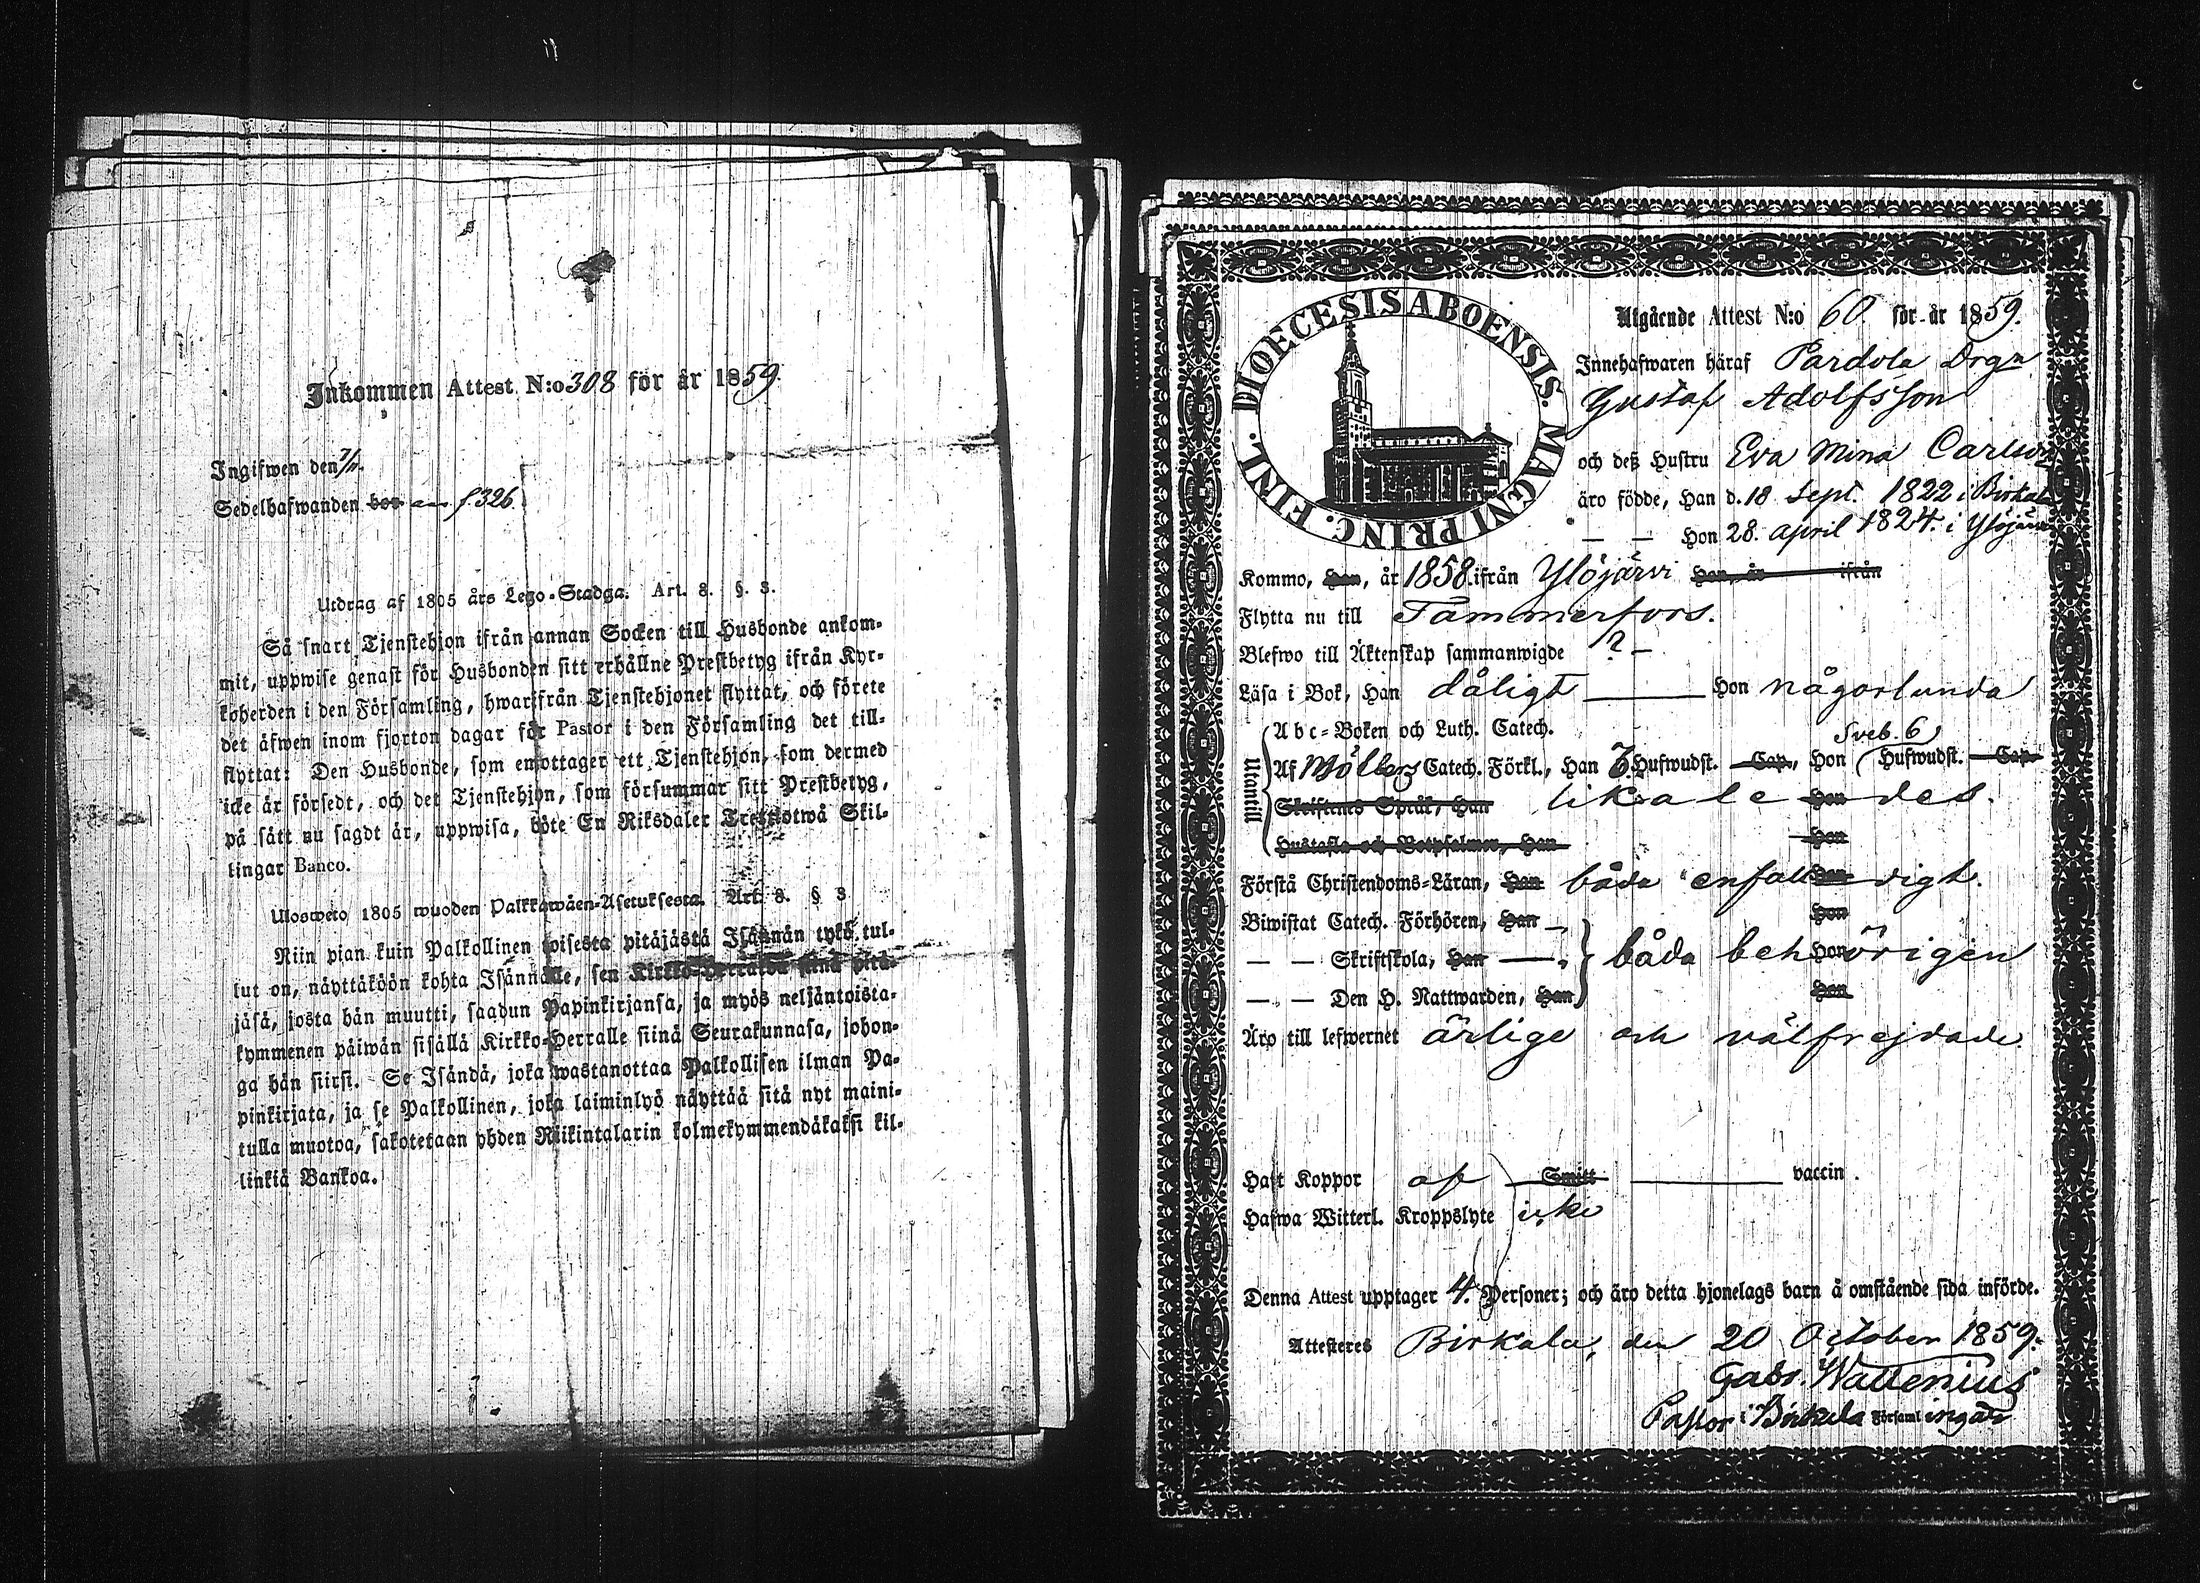 Inkommen Attest N:o 308 för år 1859.
Ingifwen den 7/11.
Sedelhafwanden bor f 326
Utdrag af 1805 års Lego-Stadga. Art. 8. §. 3.
Så snart Tjenstehjon ifrån annan Socken till Husbonde ankom-
mit, uppwise genast för Husbonden sitt erhållne Prestbetyg ifrån Kyr-
koherden i den Församling, hwarifrån Tjenstehjonet flyttat, och förete
det äfwen inom fjorton dagar för Pastor i den Församling det till-
flyttat: Den Husbonde, som emottager ett Tjenstehjon, som dermed
icke är försedt, och det Tjenstehjon, som försummar sitt Prestbetyg,
på sätt nu sagdt är, uppwisa, böte En Riksdaler Trettiotwå Skil-
lingar Banco.
Ulosweto 1805 wuoden Palkkawäen-Asetuksesta. Art. 8. § 3
Niin pian kuin Palkollinen toisesta pitäjästä Isännän tykö tul-
lut on, näyttäköön kohta Isännälle, sen Kirkko-Herralda siinä pitä-
jäsä, josta hän muutti, saadun Papinkirjansa, ja myös neljäntoista-
kymmenen päiwän sisällä Kirkko-Herralle siinä Seurakunnasa, johon-
ga hän siirsi. Se Isändä, joka wastanottaa Palkollisen ilman Pa-
pinkirjata, ja se Palkollinen, joka laiminlyö näyttää sitä nyt maini-
tulla muotoa, sakotetaan yhden Riikintalarin kolmekymmendäkaksi kil-
linkiä Bankoa.
DIOECESIS ABOENSIS. MAGNI PRINC. FINL.
Utgående Attest N:o 60 för år 1859.
Innehafwaren häraf Pardola Drgn
Gustaf Adolfsson
och deß Hustru Eva Mina Carlsdr
äro födde, Han d. 18 Sept. 1822 i Birkala
— — Hon 28. april 1824. i Ylöjärvi
Kommo, Han, år 1858. ifrån Ylöjärvi Hon, år ifrån
Flytta nu till Tammerfors.
Blefwo till Äktenskap sammanwigde ? —
Läsa i Bok, Han dåligt Hon någorlunda
Utantill
Abc-Boken och Luth. Catech.
Sveb. 6
Af Möllers Catech. Förkl., Han 3 Hufwudst. Cap., Hon Hufwudst. Cap.
Skriftenes Språk, Han likale Hon des.
Hustafla och Botpsalmer, Han Hon
Förstå Christendoms-Läran, Han båda enfalldigt.
Biwistat Catech. Förhören, Han — Hon
— — Skriftskola, Han — Hon båda behörigen
— — Den H. Nattwarden, Han Hon
Äro till lefwernet ärlige och välfrejdade.
Haft Koppor af Smitt vaccin.
Hafwa Witterl. Kroppslyte icke
Denna Attest upptager 4. Personer; och äro detta hjonelags barn å omstående sida införde.
Attesteres Birkala, den 20 October 1859.
Gabr. Wallenius
Pastor i Birkala Församlingar